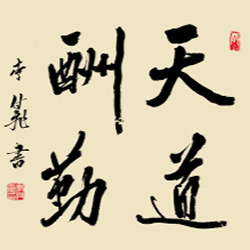 天道
酬勤
李龍書